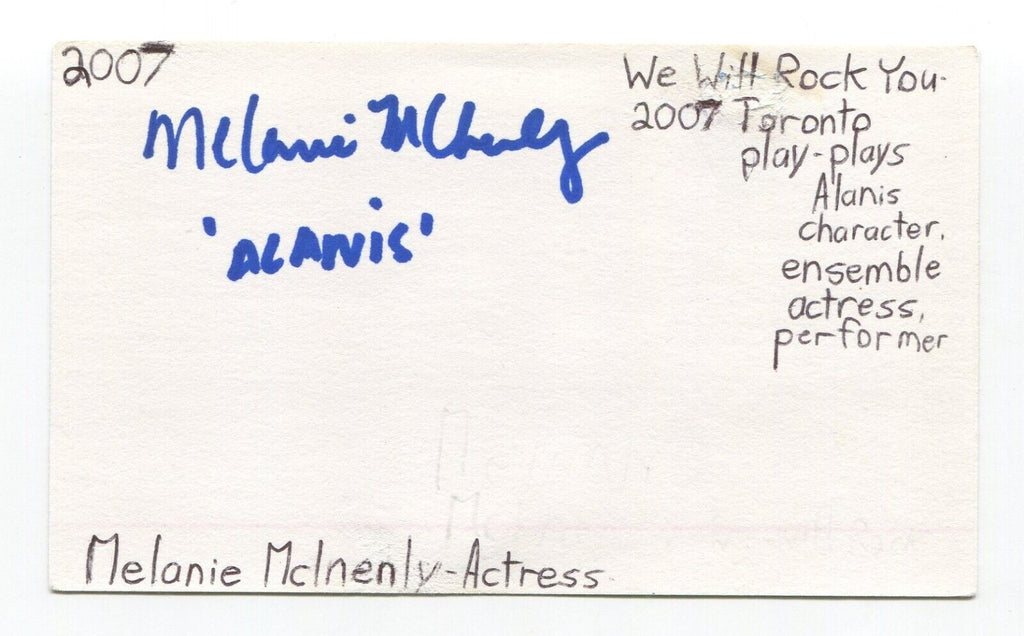 2007
We Will Rock You-
2007 Toronto
play-plays
Alanis
character,
ensemble
actress,
performer
Melanie McInenly
'ALANIS'
Melanie McInenly-Actress